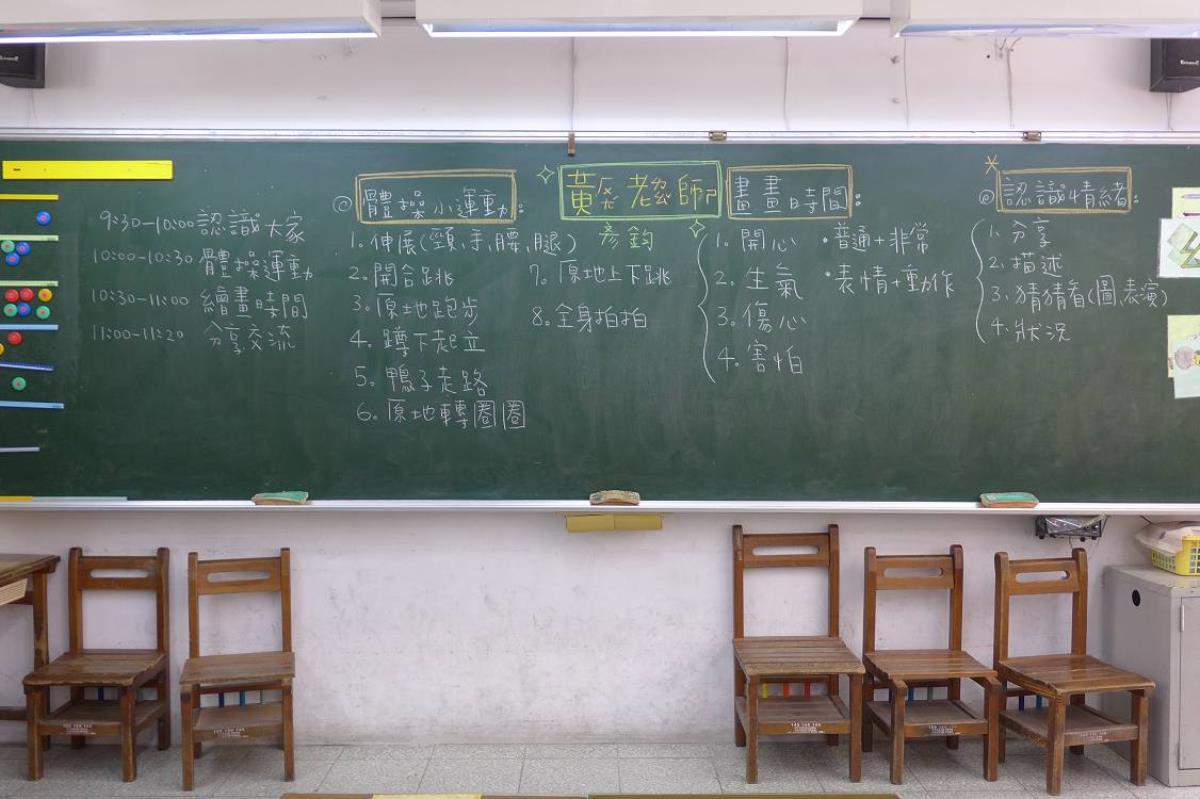 9:30-10:00 認識大家
10:00-10:30 體操運動
10:30-11:00 繪畫時間
11:00-11:20 分享交流
◎ 體操小運動:
1. 伸展(頸、手、腰、腿)
2. 開合跳
3. 原地跑步
4. 蹲下起立
5. 鴨子走路
6. 原地轉圈圈
黃 老師
彥鈞
7. 原地上下跳
8. 全身拍拍
畫畫時間:
1. 開心
2. 生氣
3. 傷心
4. 害怕
•普通+非常
•表情+動作
◎ 認識情緒:
1. 分享
2. 描述
3. 猜猜看(圖、表演)
4. 狀況